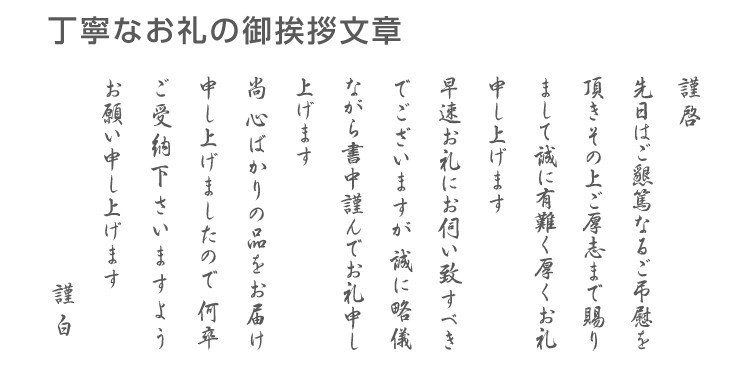 丁寧なお礼の御挨拶文章
謹啓
先日はご懇篤なるご弔慰を
頂きその上ご厚志まで賜り
まして誠に有難く厚くお礼
申し上げます
早速お礼にお伺い致すべき
でございますが 誠に略儀
ながら書中謹んでお礼申し
上げます
尚 心ばかりの品をお届け
申し上げましたので 何卒
ご受納下さいますよう
お願い申し上げます
謹白